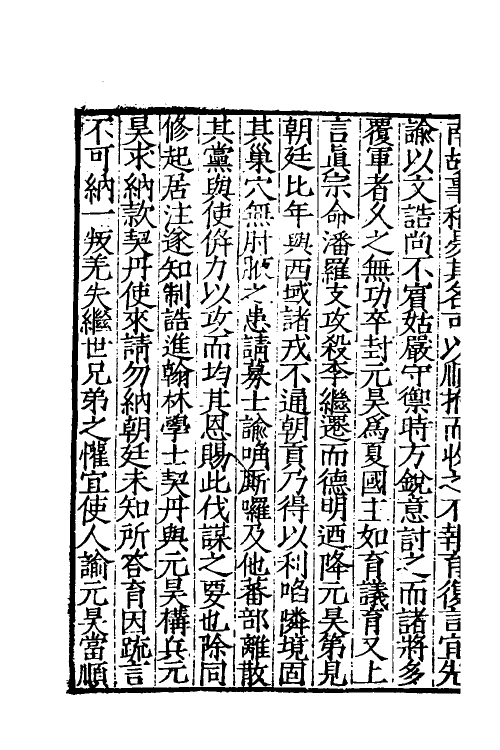 南故事稍易其名可以順撫而收之不報育復言宜先
諭以文誥尚不賓姑嚴守禦時方銳意討之而諸將多
覆軍者久之無功卒封元昊為夏國主如育議育又上
言眞宗命潘羅支攻殺李繼遷而德明迺降元昊第見
朝廷比年與西域諸戎不通朝貢乃得以利啗隣境固
其巢穴無肘腋之患請募士諭唃厮囉及他蕃部離散
其黨與使併力以攻而均其恩賜此伐謀之要也除同
修起居注遂知制誥進翰林學士契丹與元昊構兵元
昊求納款契丹使來請勿納朝廷未知所荅育因疏言
不可納一叛羌失繼世兄弟之懽宜使人諭元昊當順